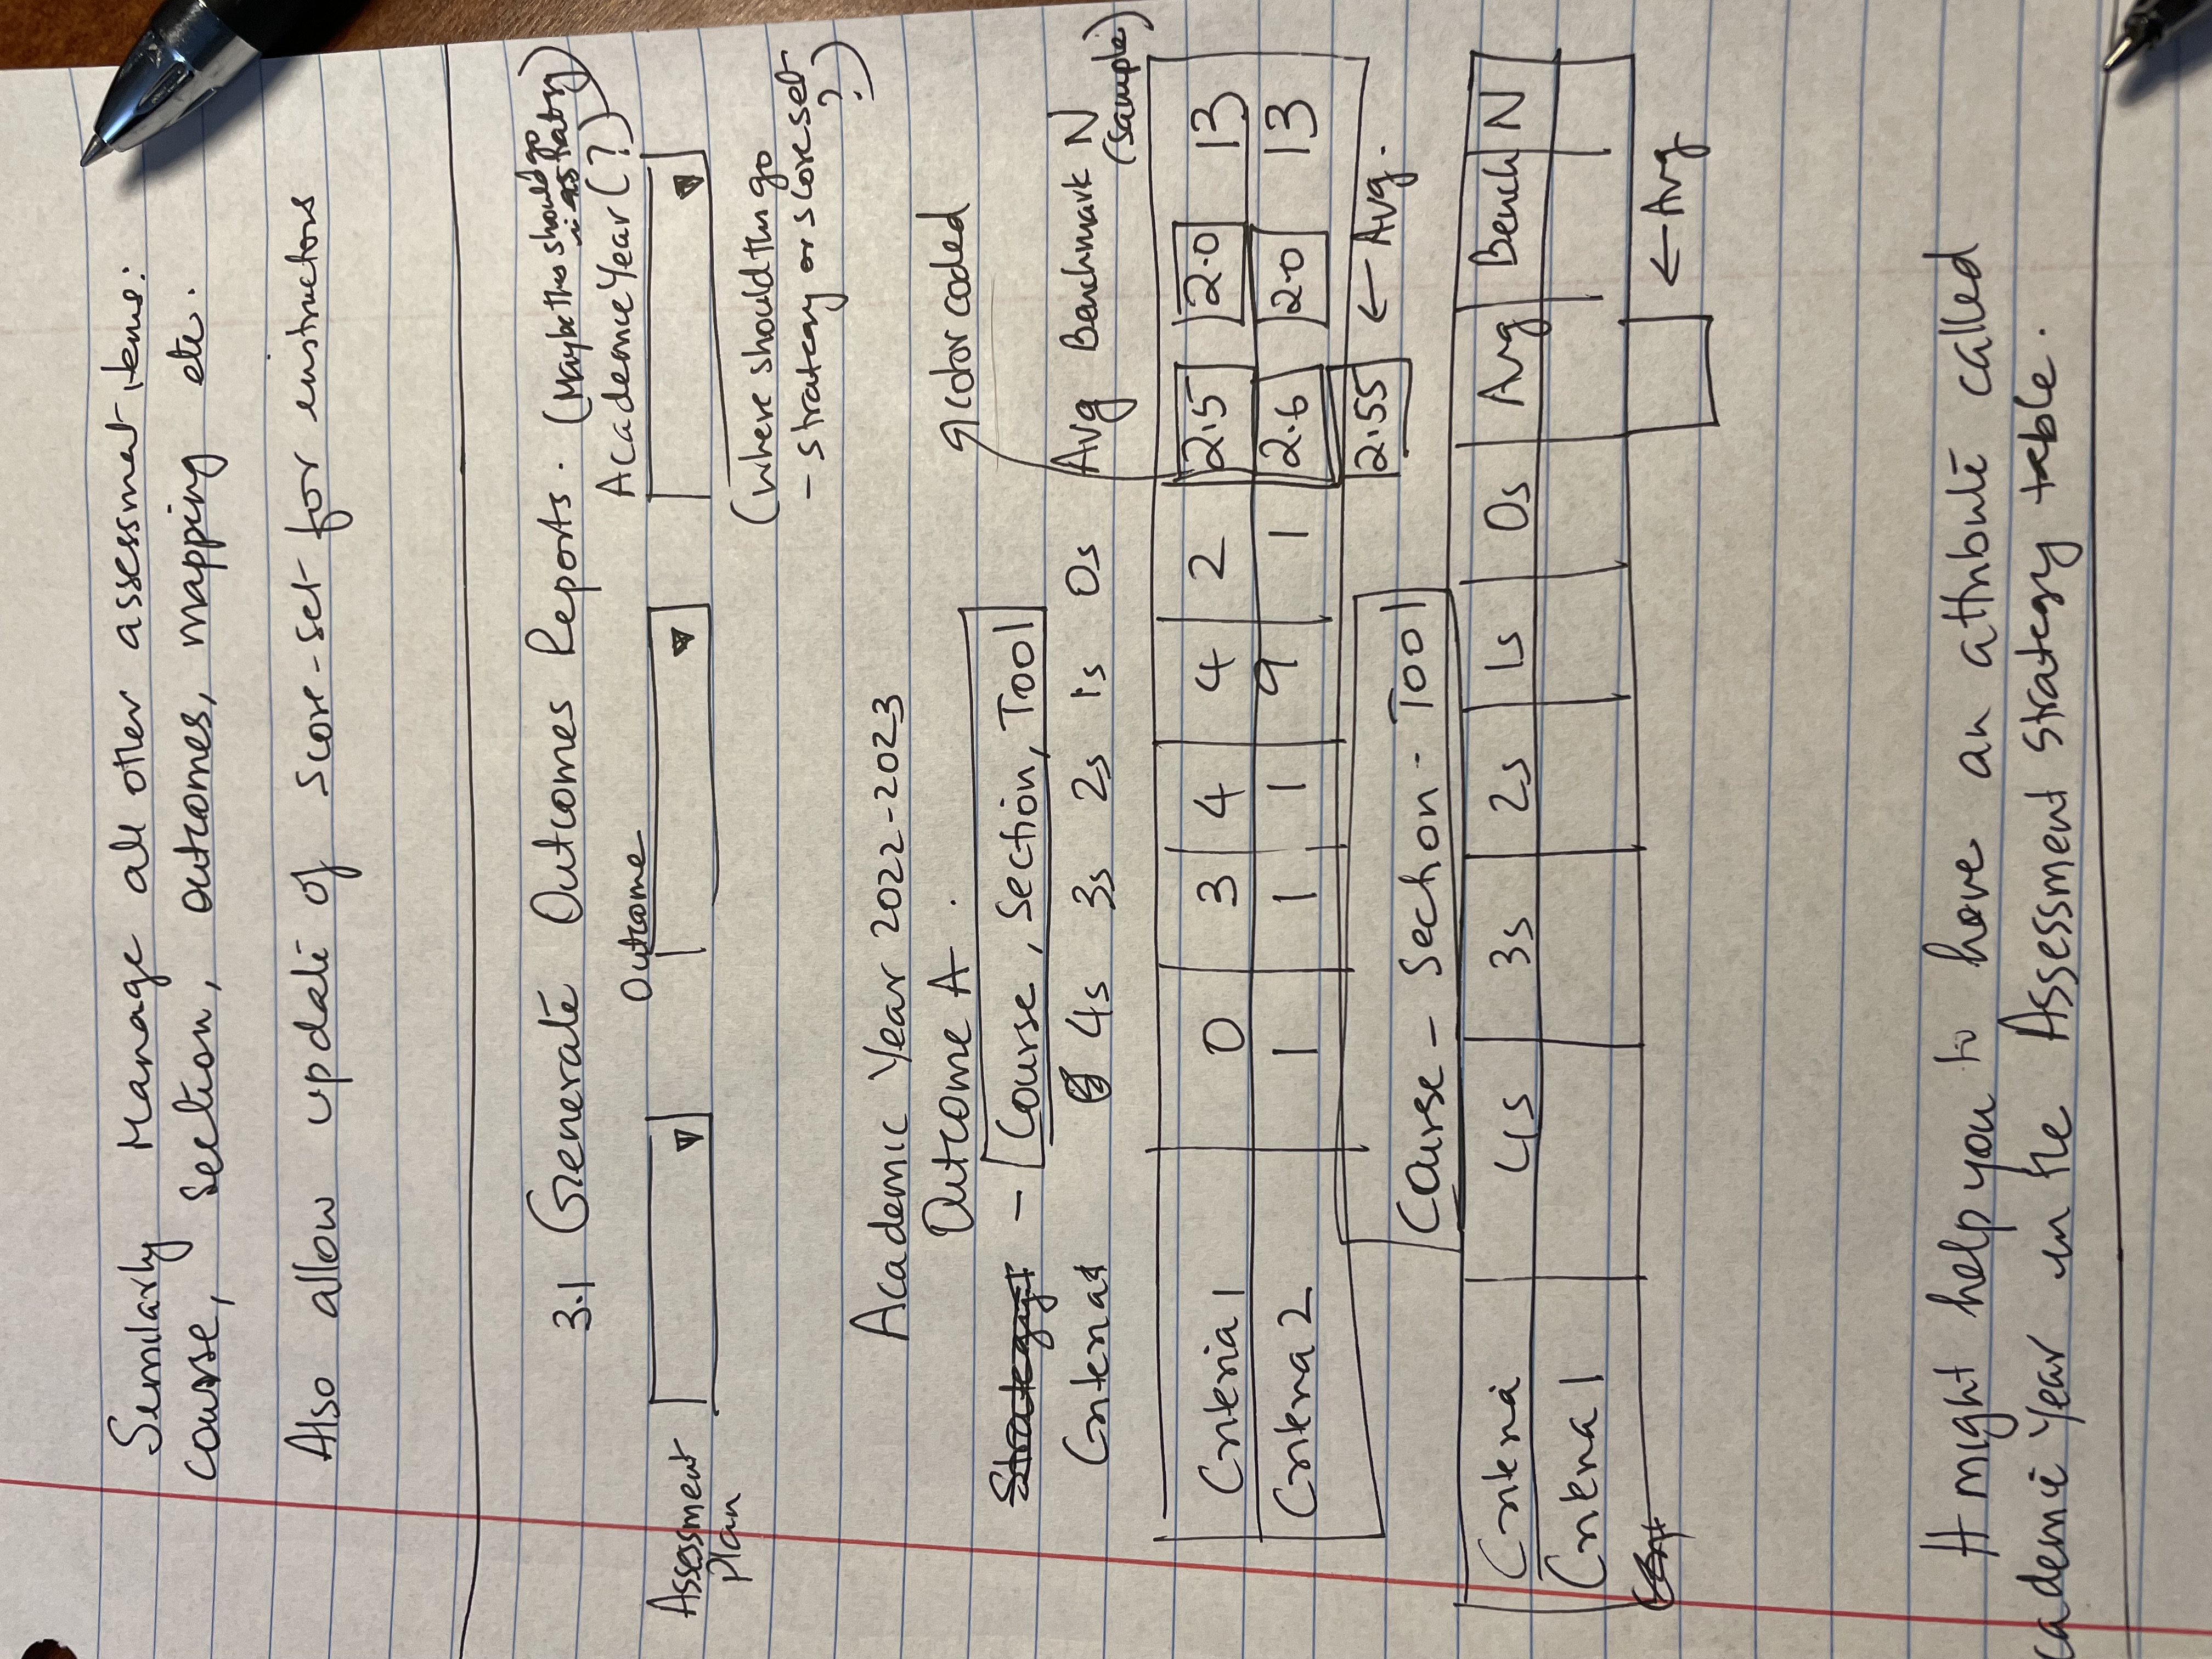 Similarly Manage all other assessment items:
course, section, outcomes, mapping etc.
Also allow update of score-set for instructors
3.1 Generate Outcomes Reports. (Maybe this should go
in as Rabry)
Outcome Academic Year (?)
Assessment
Plan
(where should this go
- strategy or score set
?)
Academic Year 2022-2023
Outcome A.
color coded
Strategy - Course, Section, Tool
Criteria 4s 3s 2s 1s 0s Avg Benchmark N
(sample)
Criteria 1 0 3 4 4 2 2.5 2.0 13
Criteria 2 1 1 1 9 1 2.6 2.0 13
2.55 ← Avg.
Course - Section - Tool
Criteria 4s 3s 2s 1s 0s Avg Bench N
Criteria 1
← Avg
It might help you to have an attribute called
cademic Year in the Assessment Strategy table.